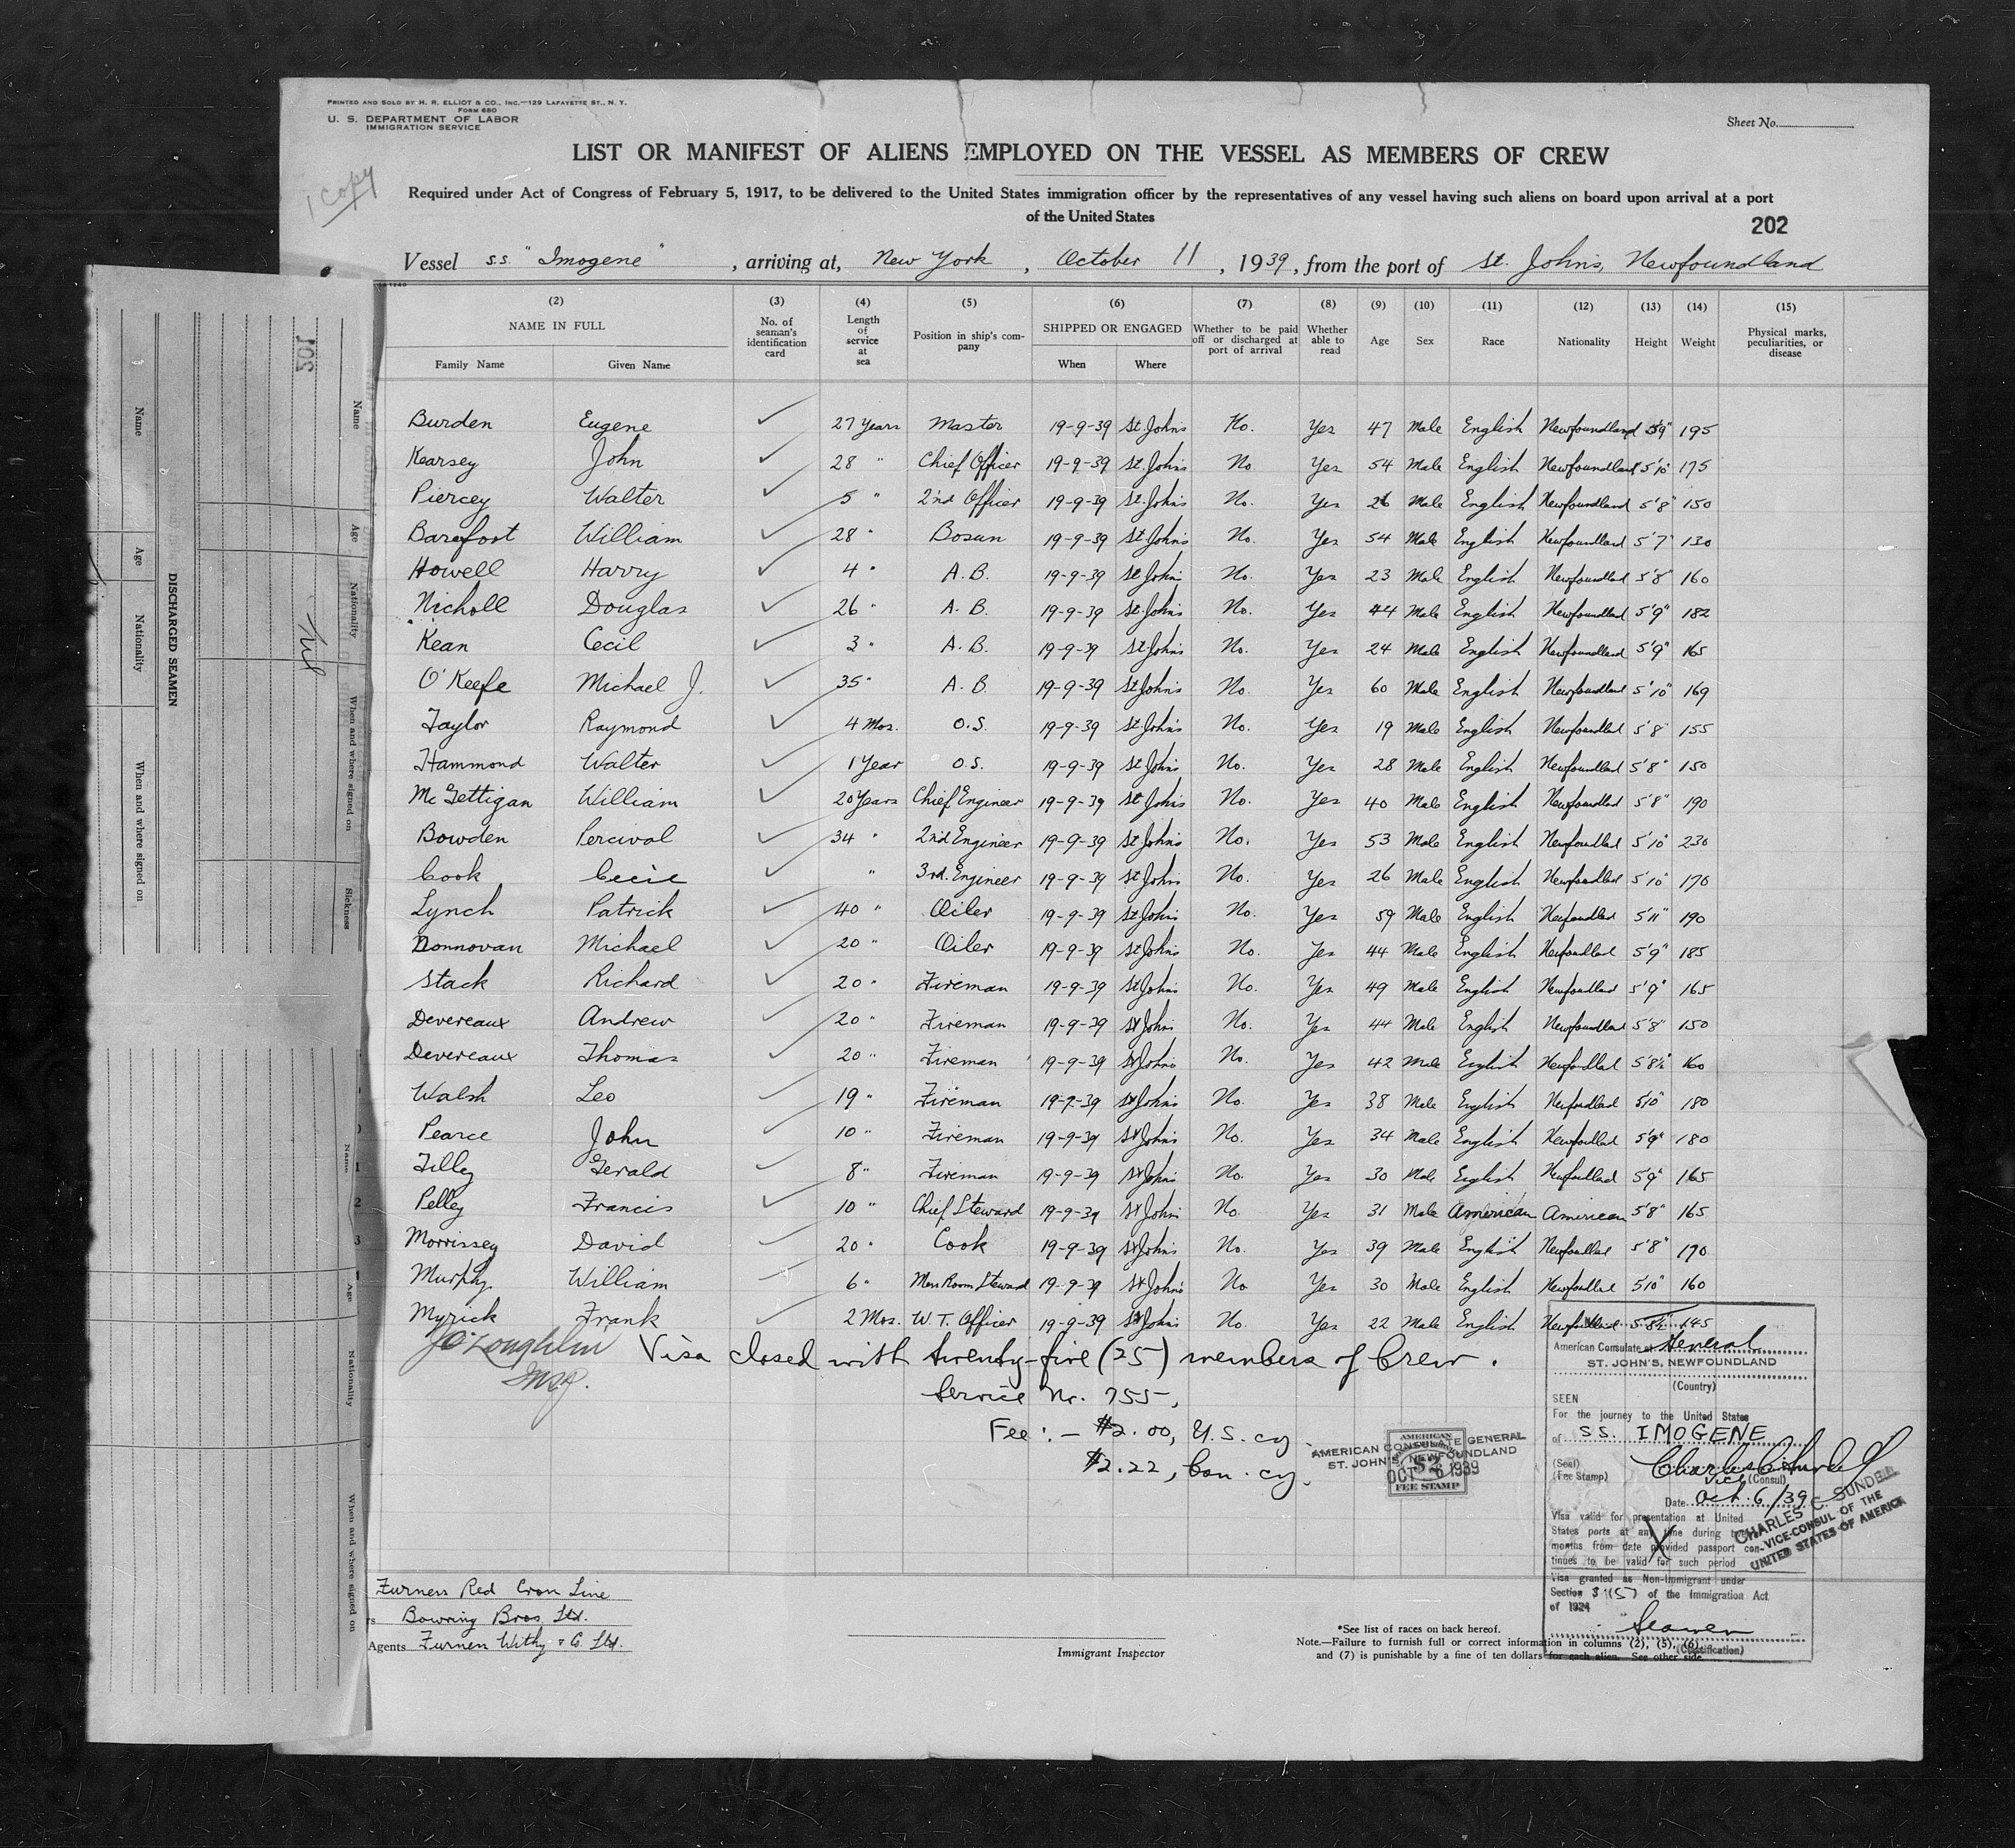 PRINTED AND SOLD BY H. R. ELLIOT & CO., INC.—129 LAFAYETTE ST., N. Y.
FORM 680
U. S. DEPARTMENT OF LABOR
IMMIGRATION SERVICE
Sheet No.
1 copy
LIST OR MANIFEST OF ALIENS EMPLOYED ON THE VESSEL AS MEMBERS OF CREW
Required under Act of Congress of February 5, 1917, to be delivered to the United States immigration officer by the representatives of any vessel having such aliens on board upon arrival at a port
of the United States
202
Vessel s.s. "Imogene", arriving at, New York, October 11, 1939, from the port of St. John's, Newfoundland
(2) (3) (4) (5) (6) (7) (8) (9) (10) (11) (12) (13) (14) (15)
NAME IN FULL No. of seaman's identification card Length of service at sea Position in ship's company SHIPPED OR ENGAGED Whether to be paid off or discharged at port of arrival Whether able to read Age Sex Race Nationality Height Weight Physical marks, peculiarities, or disease
Family Name Given Name When Where
Burden Eugene 27 Years Master 19-9-39 St John's No. Yes 47 Male English Newfoundland 5'9" 195
Kearsey John 28 " Chief Officer 19-9-39 St. John's No Yes 54 Male English Newfoundland 5'10" 175
Piercey Walter 5 " 2nd Officer 19-9-39 St. John's No. Yes 26 Male English Newfoundland 5'8" 150
Barefoot William 28 " Bosun 19-9-39 St John's No. Yes 54 Male English Newfoundland 5'7" 130
Howell Harry 4 " A.B. 19-9-39 St John's No. Yes 23 Male English Newfoundland 5'8" 160
Nicholl Douglas 26 " A.B. 19-9-39 St. John's No. Yes 44 Male English Newfoundland 5'9" 182
Kean Cecil 3 " A.B. 19-9-39 St John's No. Yes 24 Male English Newfoundland 5'9" 165
O'Keefe Michael J. 35 " A.B. 19-9-39 St John's No. Yes 60 Male English Newfoundland 5'10" 169
Taylor Raymond 4 Mos. O.S. 19-9-39 St. John's No. Yes 19 Male English Newfoundland 5'8 155
Hammond Walter 1 Year O.S. 19-9-39 St John's No. Yes 28 Male English Newfoundland 5'8" 150
McGettigan William 20 Years Chief Engineer 19-9-39 St John's No. Yes 40 Male English Newfoundland 5'8" 190
Bowden Percival 34 " 2nd Engineer 19-9-39 St John's No. Yes 53 Male English Newfoundland 5'10" 230
Cook Cecil " 3rd. Engineer 19-9-39 St John's No. Yes 26 Male English Newfoundland 5'10" 170
Lynch Patrick 40 " Oiler 19-9-39 St John's No. Yes 59 Male English Newfoundland 5'11" 190
Donnovan Michael 20 " Oiler 19-9-39 St John's No. Yes 44 Male English Newfoundland 5'9" 185
Stack Richard 20 " Fireman 19-9-39 St John's No. Yes 49 Male English Newfoundland 5'9" 165
Devereaux Andrew 20 " Fireman 19-9-39 St John's No. Yes 44 Male English Newfoundland 5'8" 150
Devereaux Thomas 20 " Fireman 19-9-39 St John's No. Yes 42 Male English Newfoundland 5'8½" 160
Walsh Leo 19 " Fireman 19-9-39 St John's No. Yes 38 Male English Newfoundland 5'10" 180
Pearce John 10 " Fireman 19-9-39 St John's No. Yes 34 Male English Newfoundland 5'9" 180
Tilley Gerald 8 " Fireman 19-9-39 St John's No. Yes 30 Male English Newfoundland 5'9" 165
Pelley Francis 10 " Chief Steward 19-9-39 St John's No. Yes 31 Male American American 5'8" 165
Morrissey David 20 " Cook 19-9-39 St John's No. Yes 39 Male English Newfoundland 5'8" 170
Murphy William 6 " Mess Room Steward 19-9-39 St John's No Yes 30 Male English Newfoundland 5'10" 160
Myrick Frank 2 Mos. W. T. Officer 19-9-39 St John's No. Yes 22 Male English Newfoundland 5'8½" 145
J O'Loughlin
Insp.
Visa closed with twenty-five (25) members of Crew.
Service Nr. 755,
Fee:— $2.00, U.S. cy.
$2.22, Can. cy.
AMERICAN CONSULATE GENERAL
ST. JOHN'S, NEWFOUNDLAND
OCT 6 1939
AMERICAN
$2
FEE STAMP
American Consulate at General
ST. JOHN'S, NEWFOUNDLAND
(Country)
SEEN
For the journey to the United States
of S.S. IMOGENE
(Seal)
(Fee Stamp)
Vice (Consul)
Date Oct. 6/39
CHARLES C. SUNDELL
VICE-CONSUL OF THE
UNITED STATES OF AMERICA
Visa valid for presentation at United
States ports at any time during
months from date provided passport con-
tinues to be valid for such period
Visa granted as Non-Immigrant under
Section 3 (5) of the Immigration Act
of 1924
Seamen
(Classification)
Furness Red Cross Line
Bowring Bros. Ltd.
Agents Furness Withy & Co. Ltd.
Immigrant Inspector
*See list of races on back hereof.
Note.—Failure to furnish full or correct information in columns (2), (5), (6),
and (7) is punishable by a fine of ten dollars for each alien. See other side.
DISCHARGED SEAMEN
Name Age Nationality When and where signed on
Name Age Nationality When and where signed on Sickness
Nil
Name Age Nationality When and where signed on